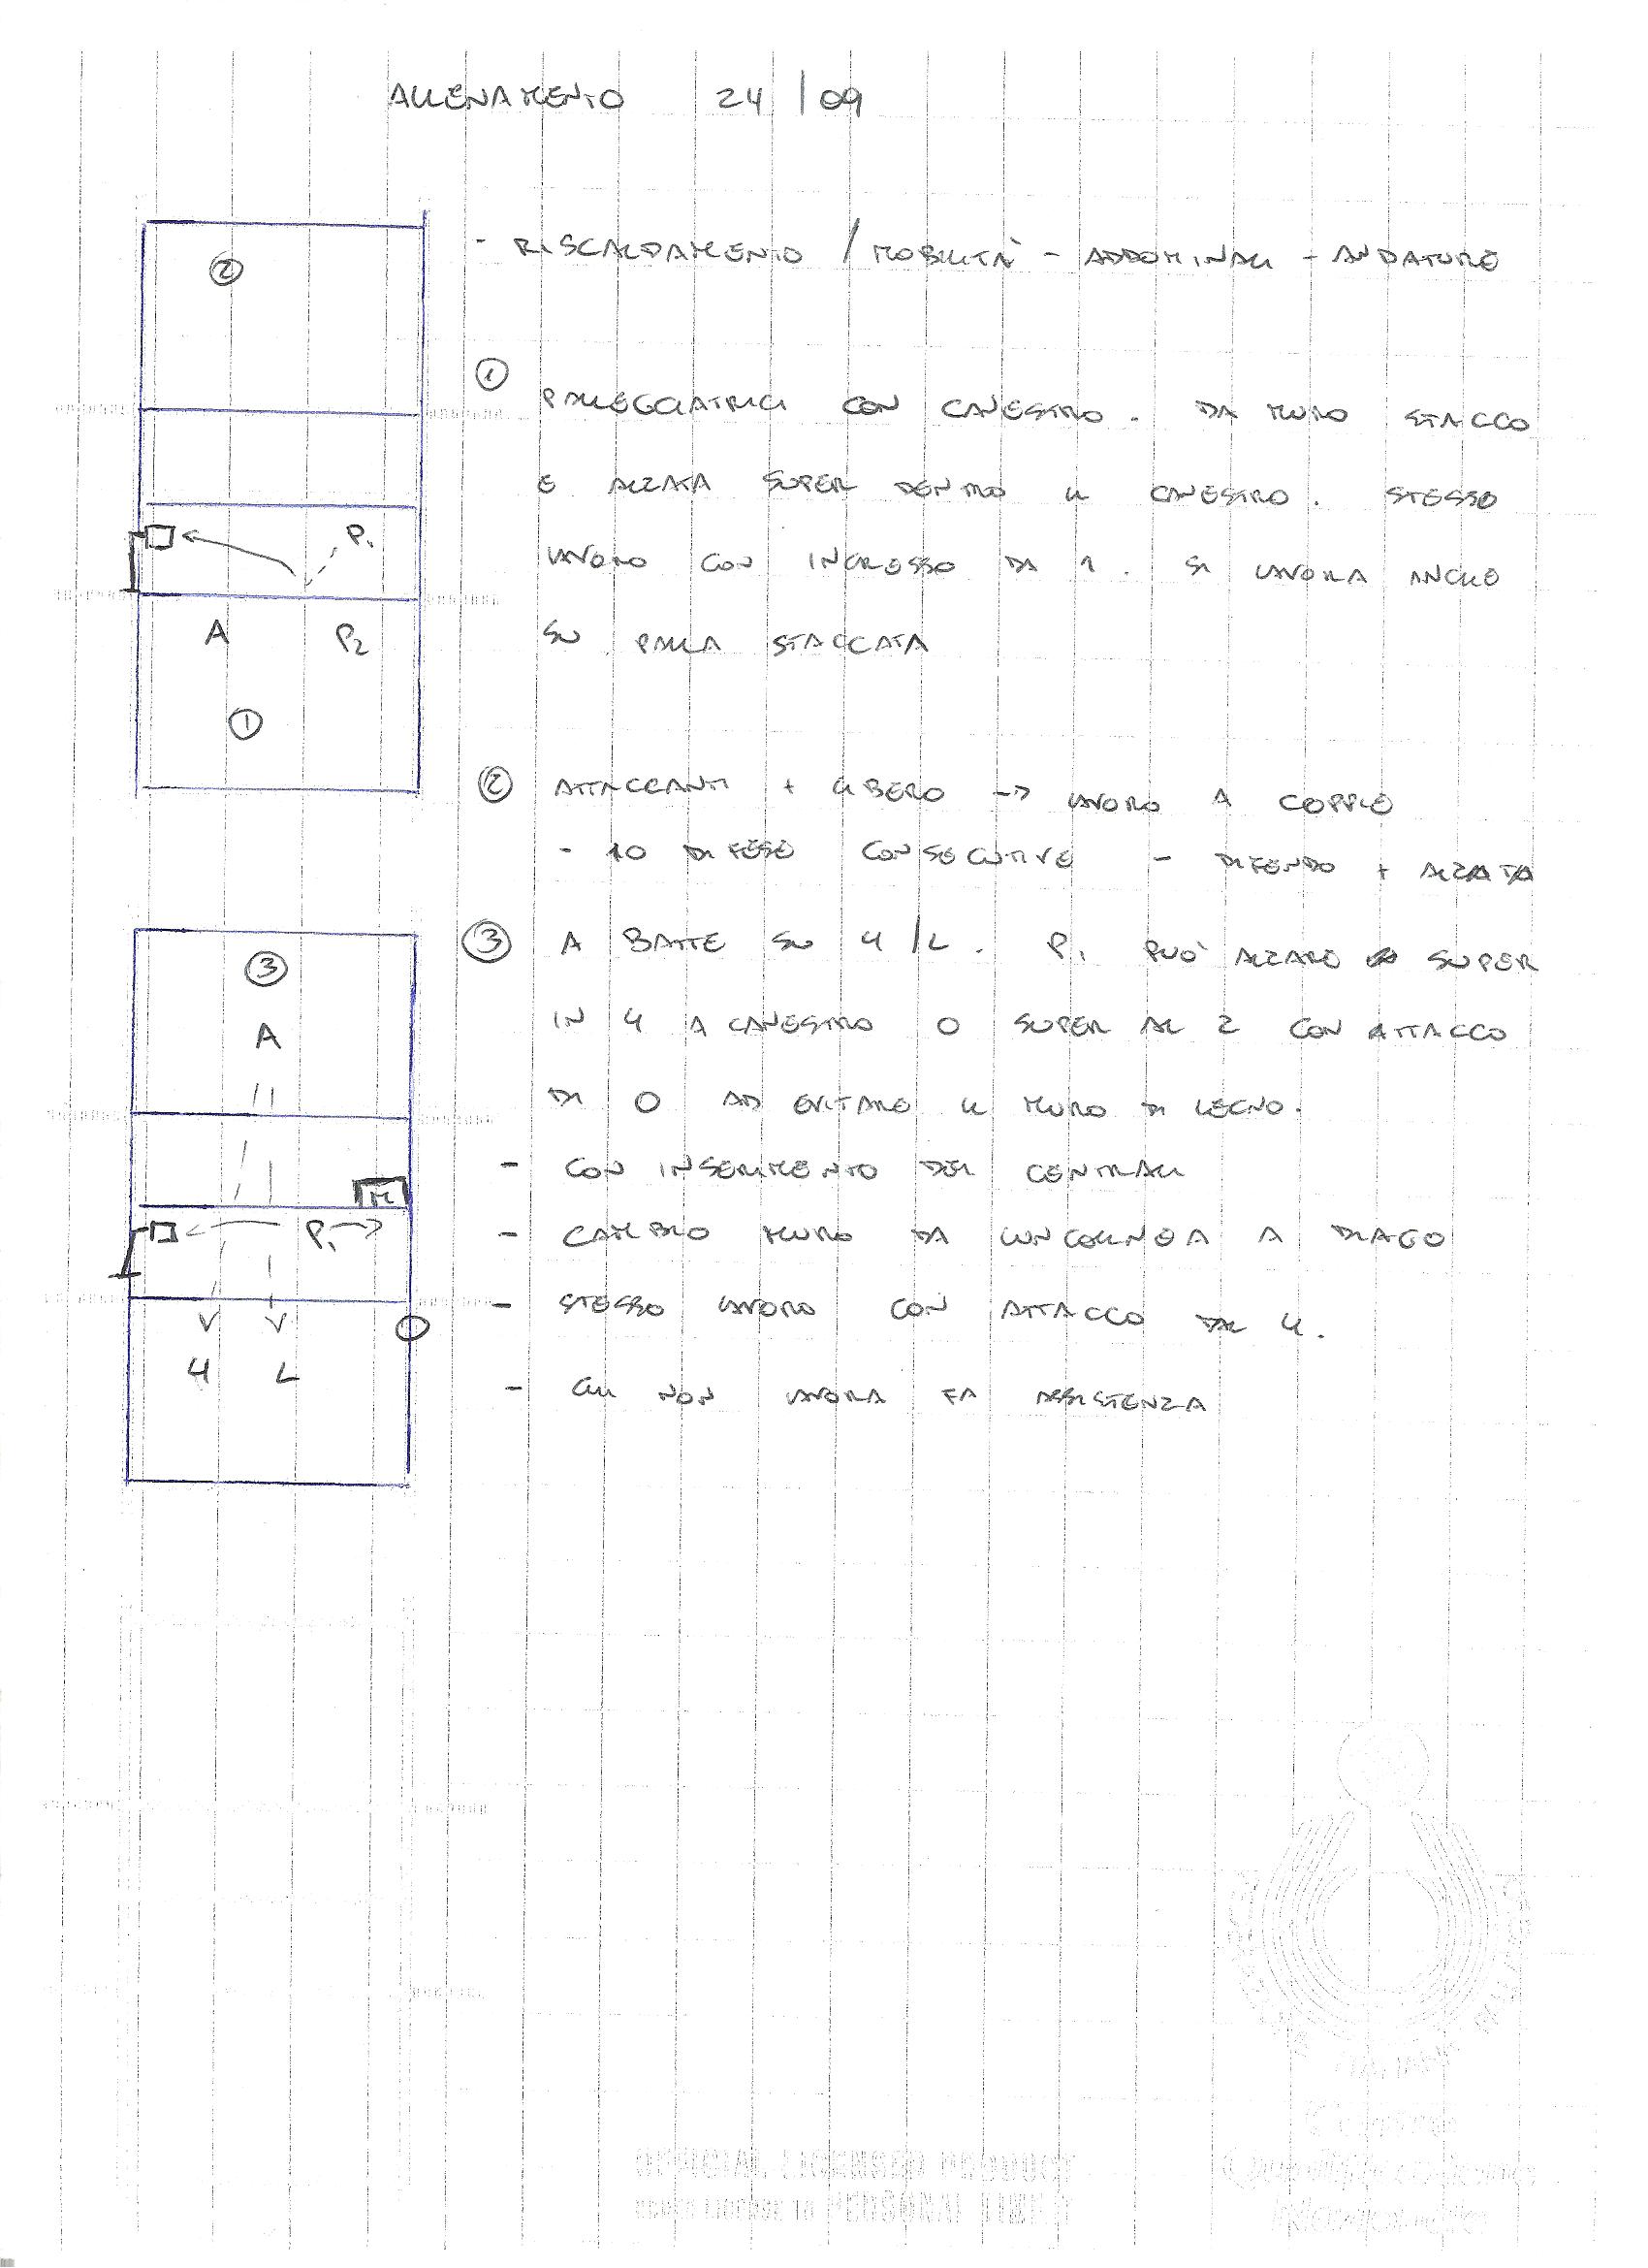 ALLENAMENTO 24/09
②
- RISCALDAMENTO / MOBILITÀ - ADDOMINALI - ANDATURE
①
PALLEGGIATRICI CON CANESTRO. DA MURO STACCO
E ALZATA SUPER DENTRO IL CANESTRO. STESSO
LAVORO CON INGRESSO DA 1. SI LAVORA ANCHE
SU PALLA STACCATA
P1
A P2
①
② ATTACCANTI + LIBERO -> LAVORO A COPPIE
- 10 DIFESE CONSECUTIVE - DIFENDO + ALZATA
③ A BATTE SU 4/L. P1 PUÒ ALZARE SUPER
IN 4 A CANESTRO O SUPER AL 2 CON ATTACCO
DI O AD EVITARE IL MURO DI LEGNO.
- CON INSERIMENTO DEI CENTRALI
- CAMBIO MURO DA LUNGOLINEA A DIAGO
- STESSO LAVORO CON ATTACCO DAL 4.
- CHI NON LAVORA FA ASSISTENZA
③
A
M
P1
O
4 L
OFFICIAL LICENSED PRODUCT